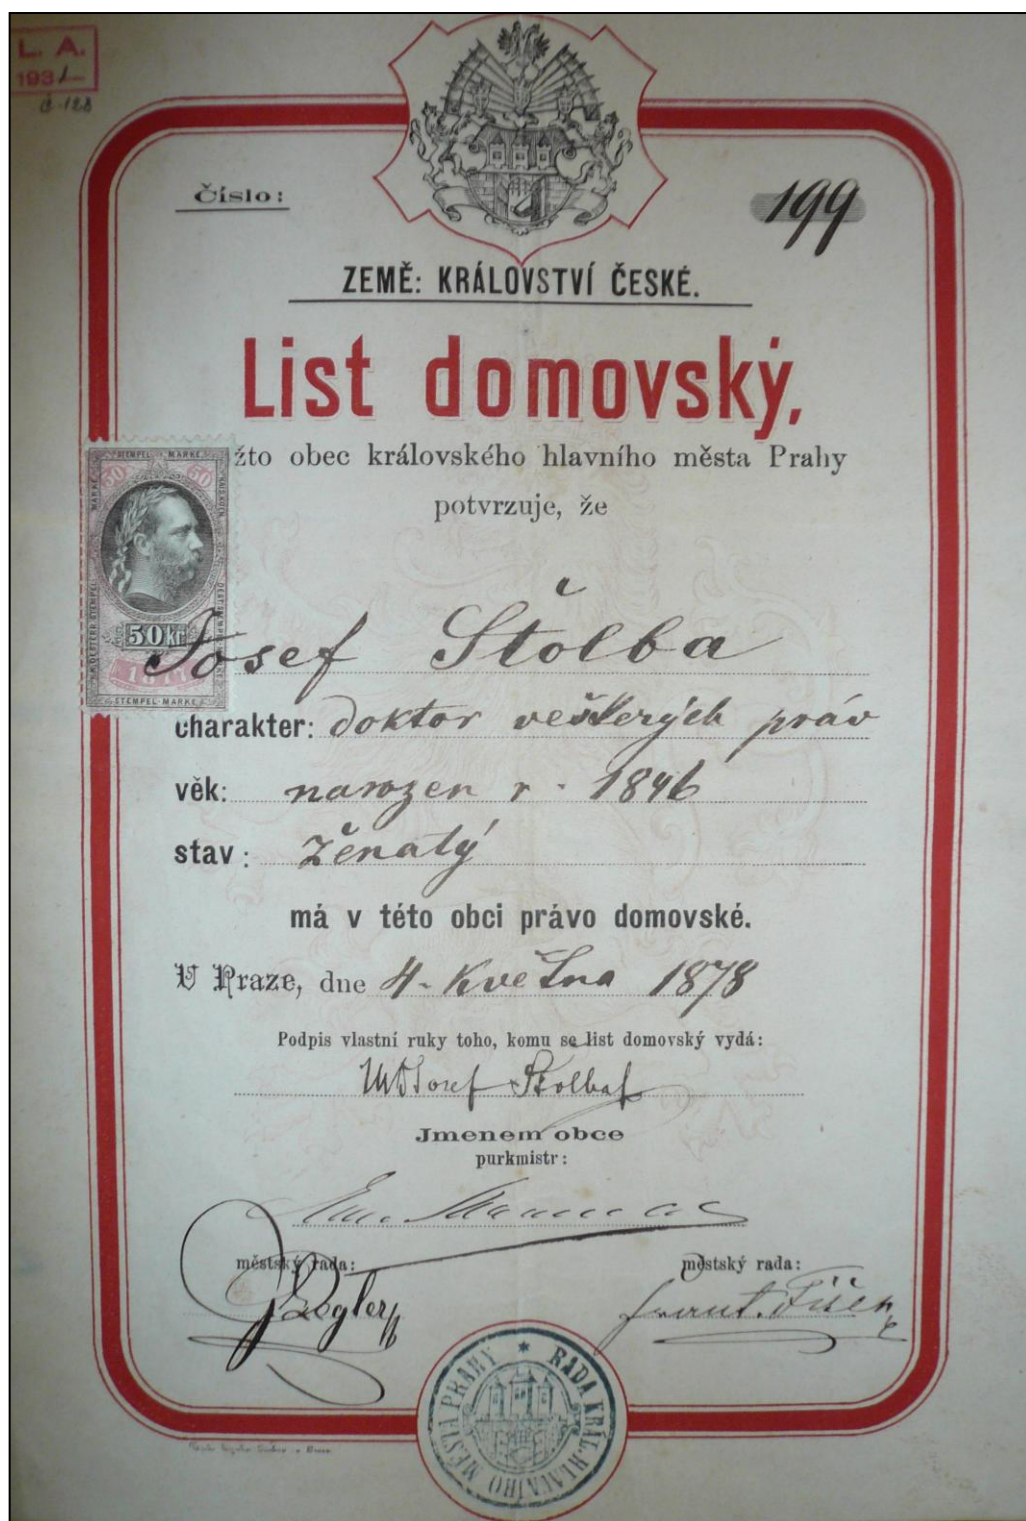 L. A.
193
č. 123
Číslo:
199
ZEMĚ: KRÁLOVSTVÍ ČESKÉ.
List domovský,
žto obec královského hlavního města Prahy
potvrzuje, že
STEMPEL MARKE
50 50
50 kr
STEMPEL-MARKE
Josef Štolba
charakter: doktor veškerých práv
věk: narozen r. 1846
stav: ženatý
má v této obci právo domovské.
V Praze, dne 4. Května 1878
Podpis vlastní ruky toho, komu se list domovský vydá:
Josef Štolba
Jmenem obce
purkmistr:
městský rada: městský rada:
Frant.
RADA KRÁL. HLAVNÍHO MĚSTA PRAHY